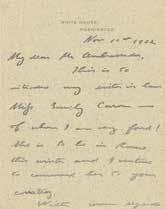 WHITE HOUSE,
WASHINGTON.
Nov 1st 1902
My dear Mr Ambassador,
This is to
introduce my sister in law
Miss Emily Carow —
of whom I am very fond!
She is to be in Rome,
this winter and I venture
to commend her to your
courtesy.
With warm regards